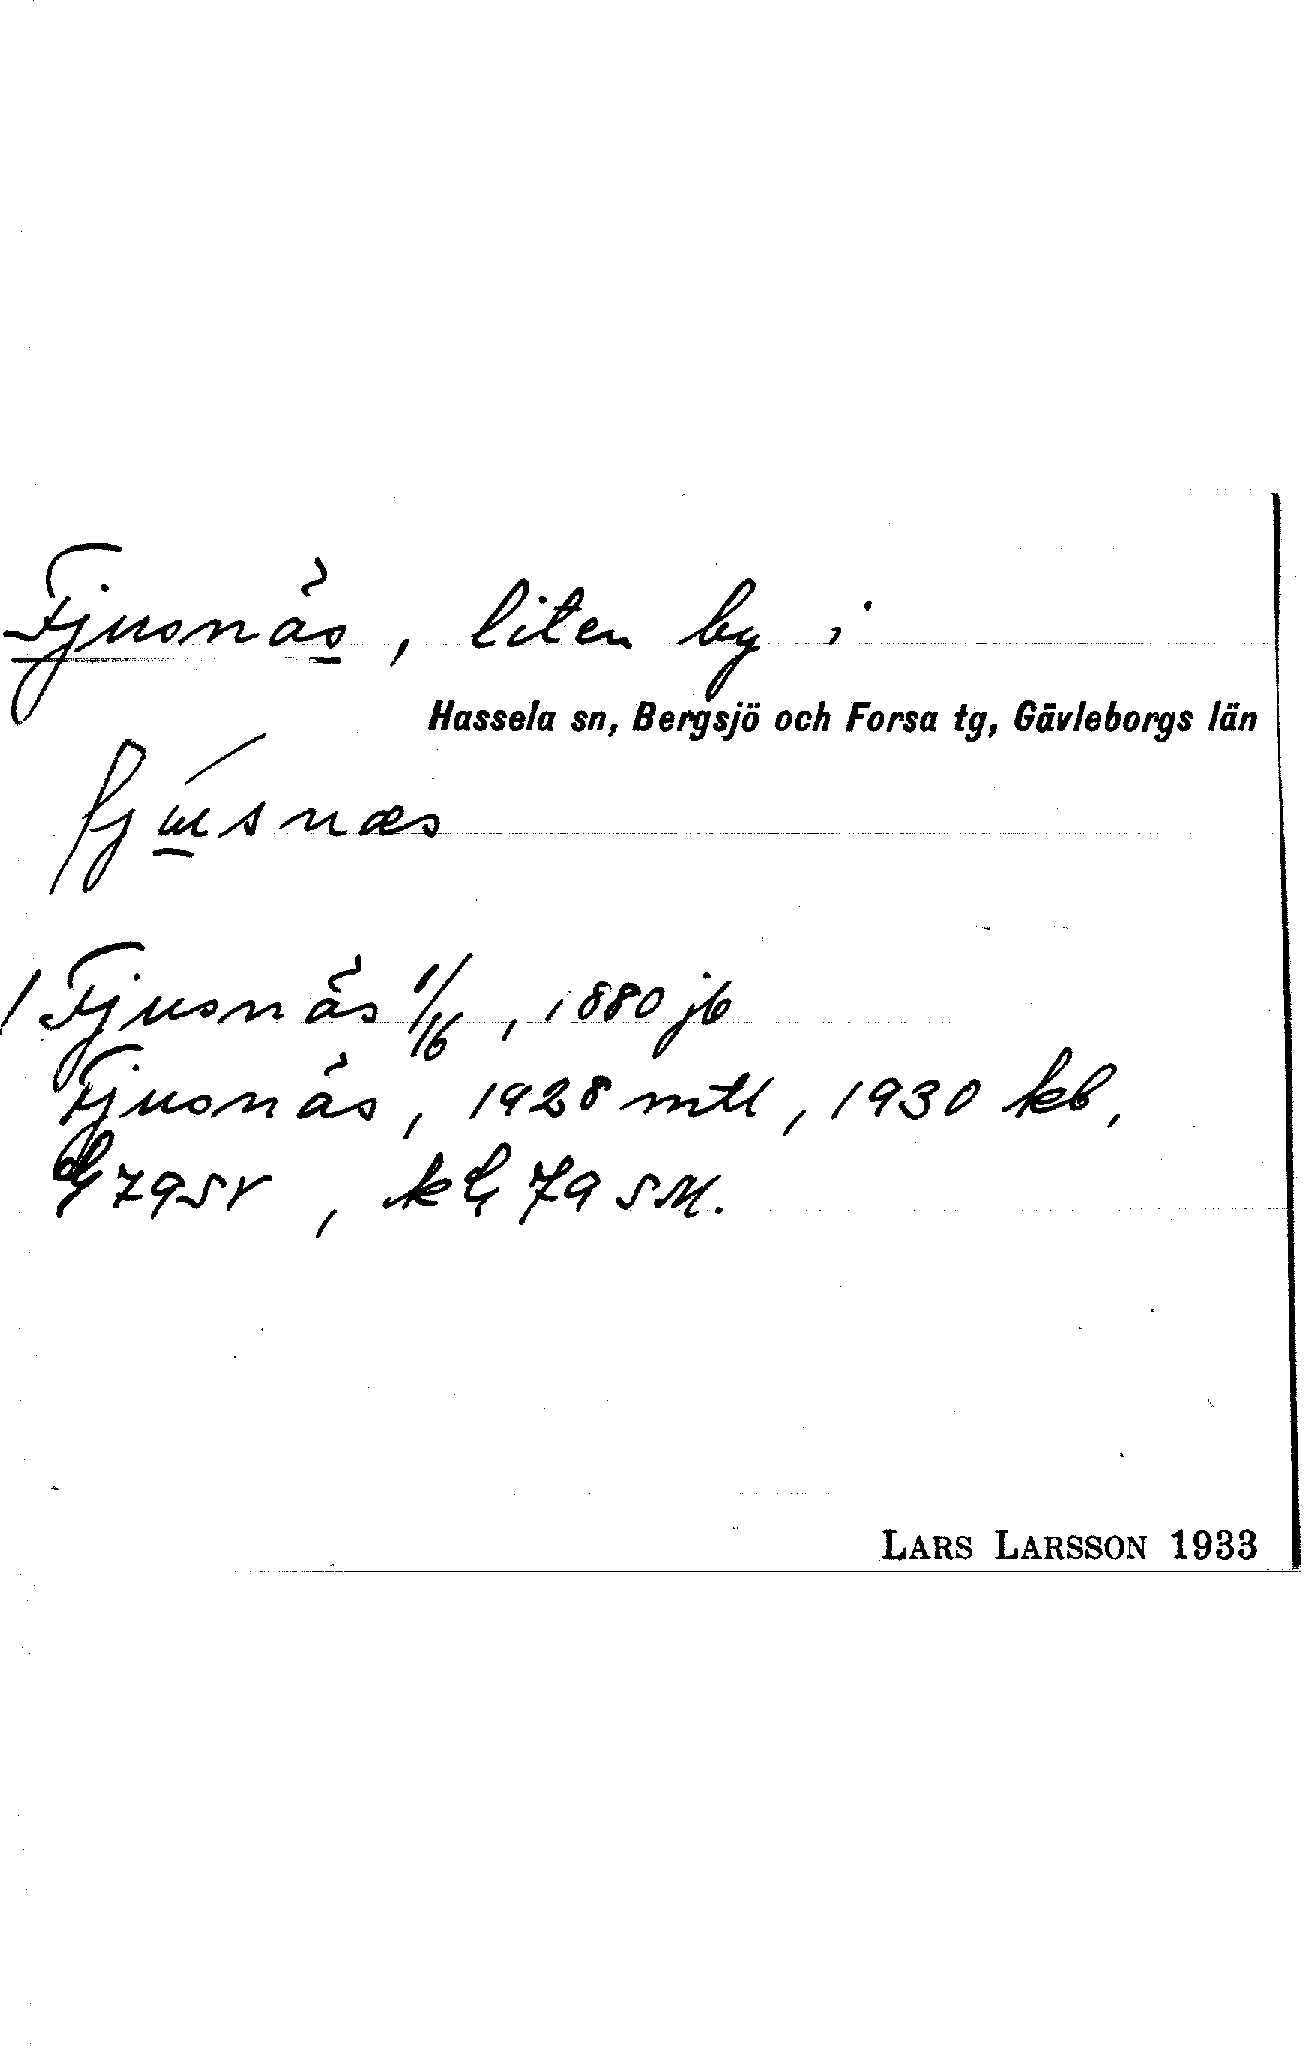 Fjusnäs, liten by i
Hassela sn, Bergsjö och Forsa tg, Gävleborgs län
fjusnæs
1 Fjusnäs 1/16, 1880 jb
Fjusnäs, 1928 mtl, 1930 kb,
G 79 SV, kG 79 SM.
LARS LARSSON 1933